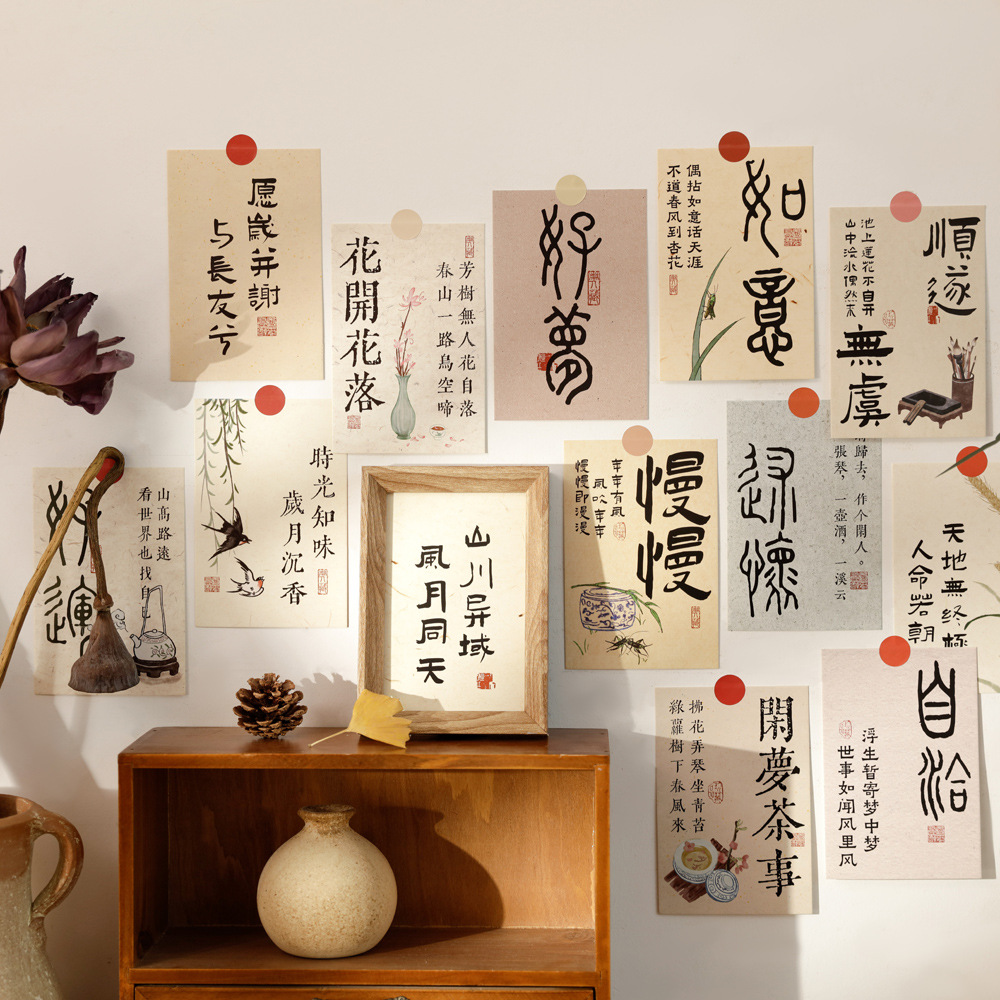 愿歲并謝
与長友兮
花開花落
芳樹無人花自落
春山一路鳥空啼
好夢
如意
偶拈如意話天涯
不道春风到杏花
順遂
無虞
池上蓮花不自开
山中流水偶然来
好運
山高路遠
看世界也找自
時光知味
歲月沉香
山川异域
風月同天
慢慢
年年有風
風吹年年
慢慢即漫漫
歸去，作个閑人。
張琴，一壺酒，一溪云
天地無終極
人命若朝
閑夢茶事
拂花弄琴坐青苔
綠蘿樹下春風來
自洽
浮生暂寄梦中梦
世事如闻风里风